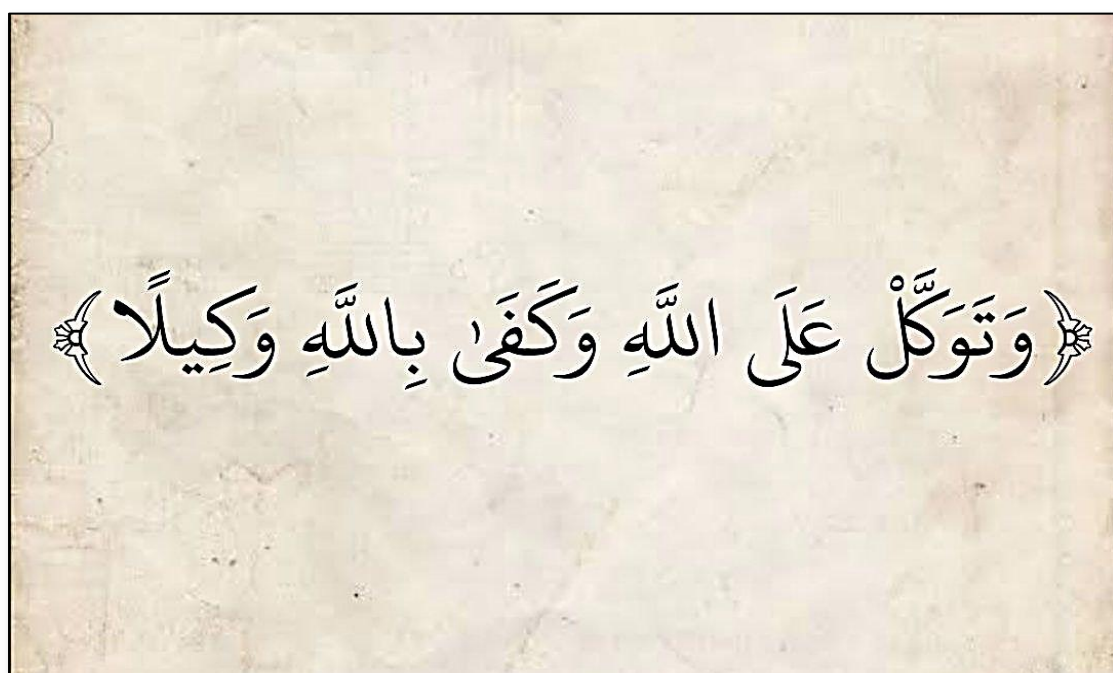 ﴿وَتَوَكَّلْ عَلَى اللَّهِ وَكَفَىٰ بِاللَّهِ وَكِيلًا﴾